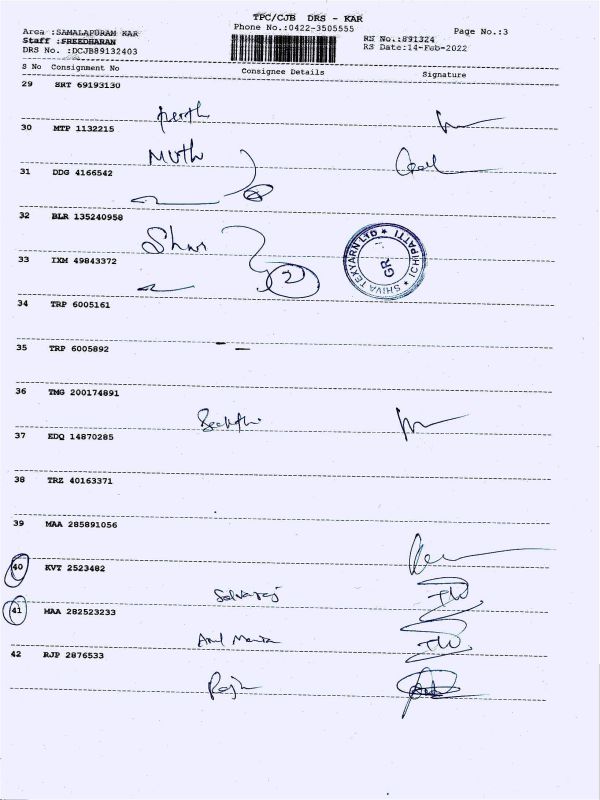 TPC/CJB DRS - KAR
Phone No.:0422-3505555
Area :SAMALAPURAM KAR
Staff :FREEDHARAN
DRS No. :DCJB89132403
RS No.:891324
RS Date:14-Feb-2022
Page No.:3
S No Consignment No Consignee Details Signature
29 SRT 69193130
30 MTP 1132215
Muth
31 DDG 4166542
32 BLR 135240958
33 IXM 49843372
2
SHIVA TEXYARN LTD ★ ICHIPATTI ★
GR
34 TRP 6005161
35 TRP 6005892
36 TMG 200174891
37 EDQ 14870285
38 TRZ 40163371
39 MAA 285891056
40 KVT 2523482
Selvaraj
41 MAA 282523233
42 RJP 2876533